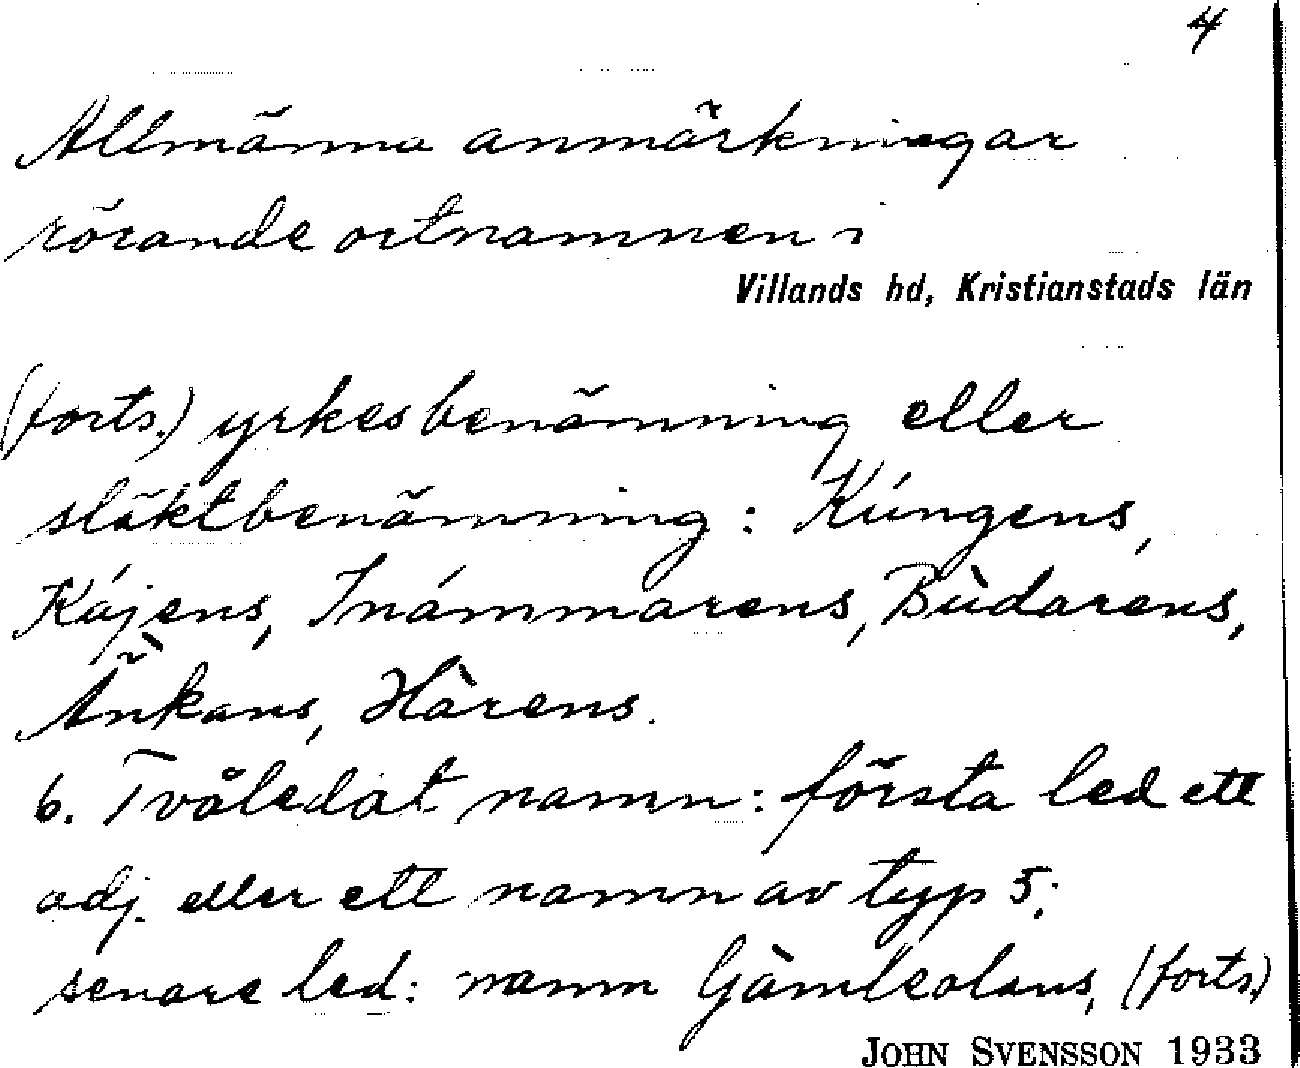 4
Allmänna anmärkningar
rörande ortnamnen i
Villands hd, Kristianstads län
(forts.) yrkesbenämning eller
släktbenämning: Kúngens,
Kájens, Inámmarens, Bùdarens,
Ä̀nkans, Hàrens.
6. Tvåledat namn: första led ett
adj. eller ett namn av typ 5;
senare led: namn Gàmleolans, (forts.)
JOHN SVENSSON 1933